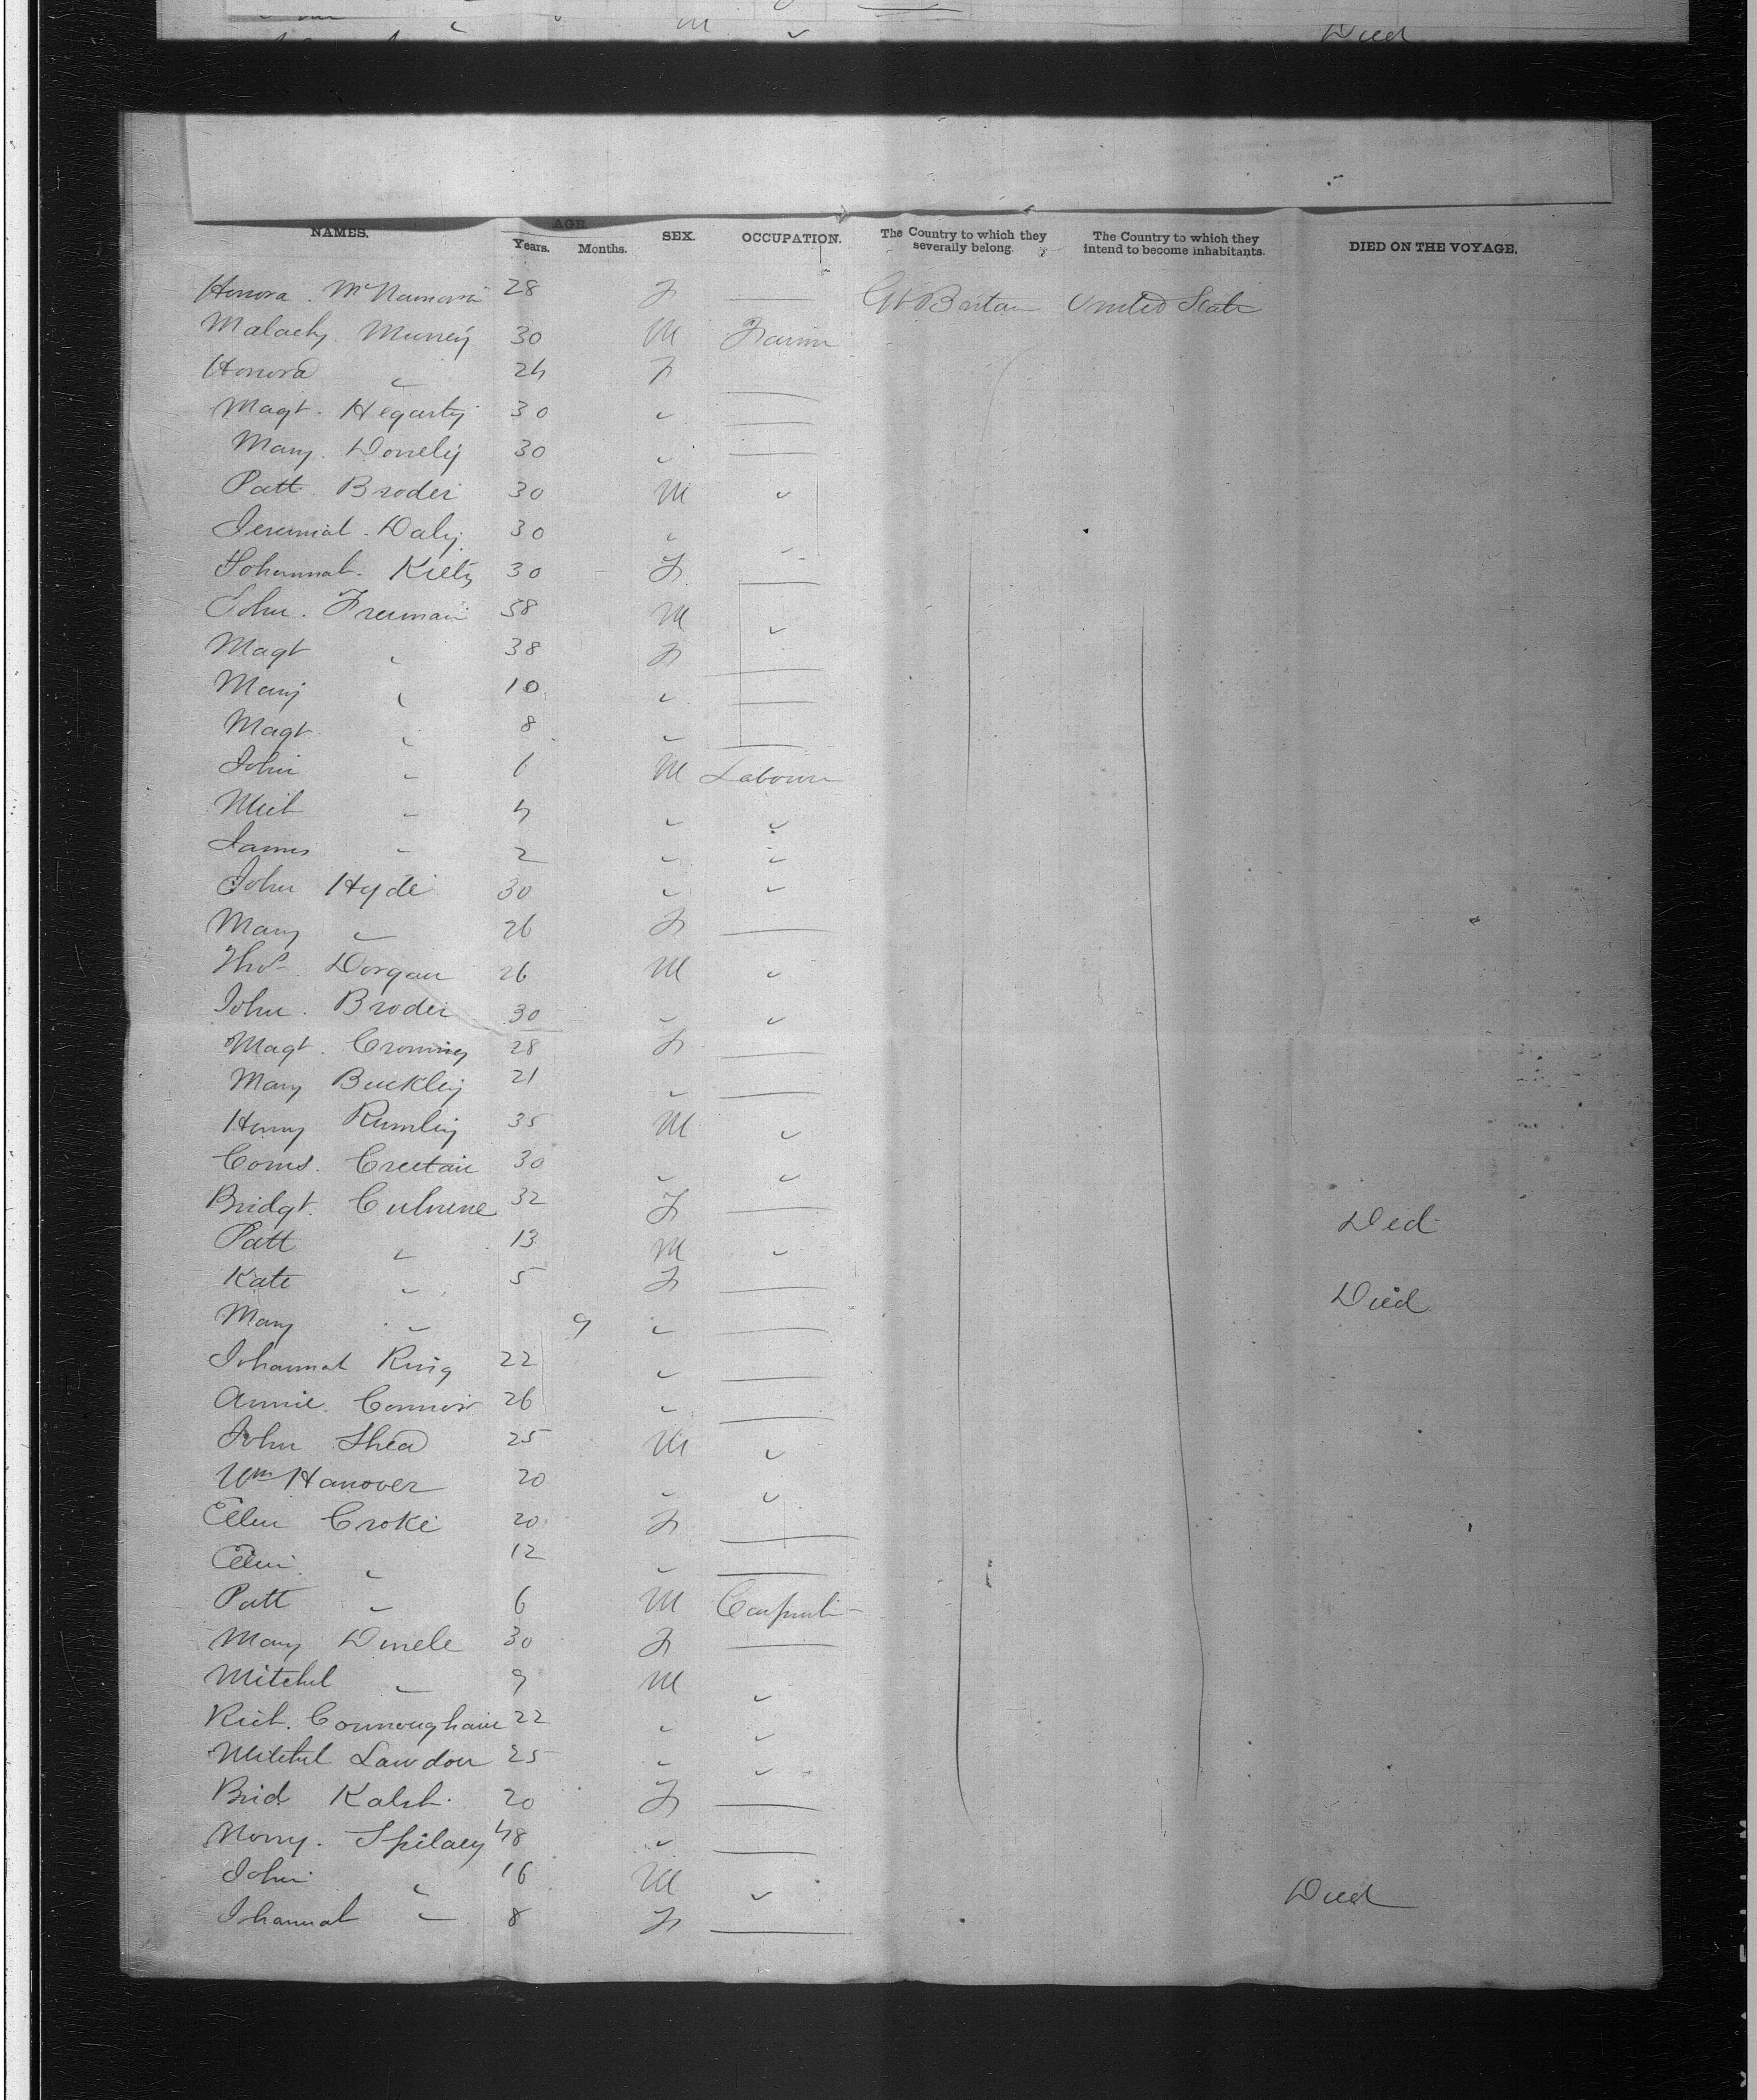 Died
NAMES. AGE. SEX. OCCUPATION. The Country to which they severally belong. The Country to which they intend to become inhabitants. DIED ON THE VOYAGE.
Years. Months.
Honora. McNamara 28 F — Gt Britan United State
Malachy. Murrey 30 M Farmr
Honora " 24 F —
Magt. Hegarty 30 " —
Mary. Donely 30 " —
Patt. Broder 30 M "
Jeremiah. Daly 30 " "
Johannah. Kiely 30 F —
John. Freeman 38 M "
Magt " 38 F —
Mary " 10 " —
Magt " 8 " —
John " 6 M Labourer
Mich " 4 " "
James " 2 " "
John Hyde 30 " "
Mary " 26 F —
Thos Dorgan 26 M "
John. Broder 30 " "
Magt. Croning 28 F —
Mary Buckley 21 " —
Henry Rumley 35 M "
Corns. 30 " "
Bridgt. Culnene 32 F — Died
Patt " 13 M "
Kate " 5 F — Died
Mary " 9 " —
Johannah Ring 22 " —
Annie. Connor 26 " —
John Shea 25 M "
Wm Hanover 20 " "
Ellen Croke 20 F —
Ellen " 12 " —
Patt " 6 M Carpenter
Mary Dinele 30 F —
Mitchel " 9 M "
Rich. Connougham 22 " "
Mitchel Lawdon 25 " "
Brid Kalsh. 20 F —
Norry. Spilacy 48 " —
John " 16 M " Died
Johannah " 8 F —